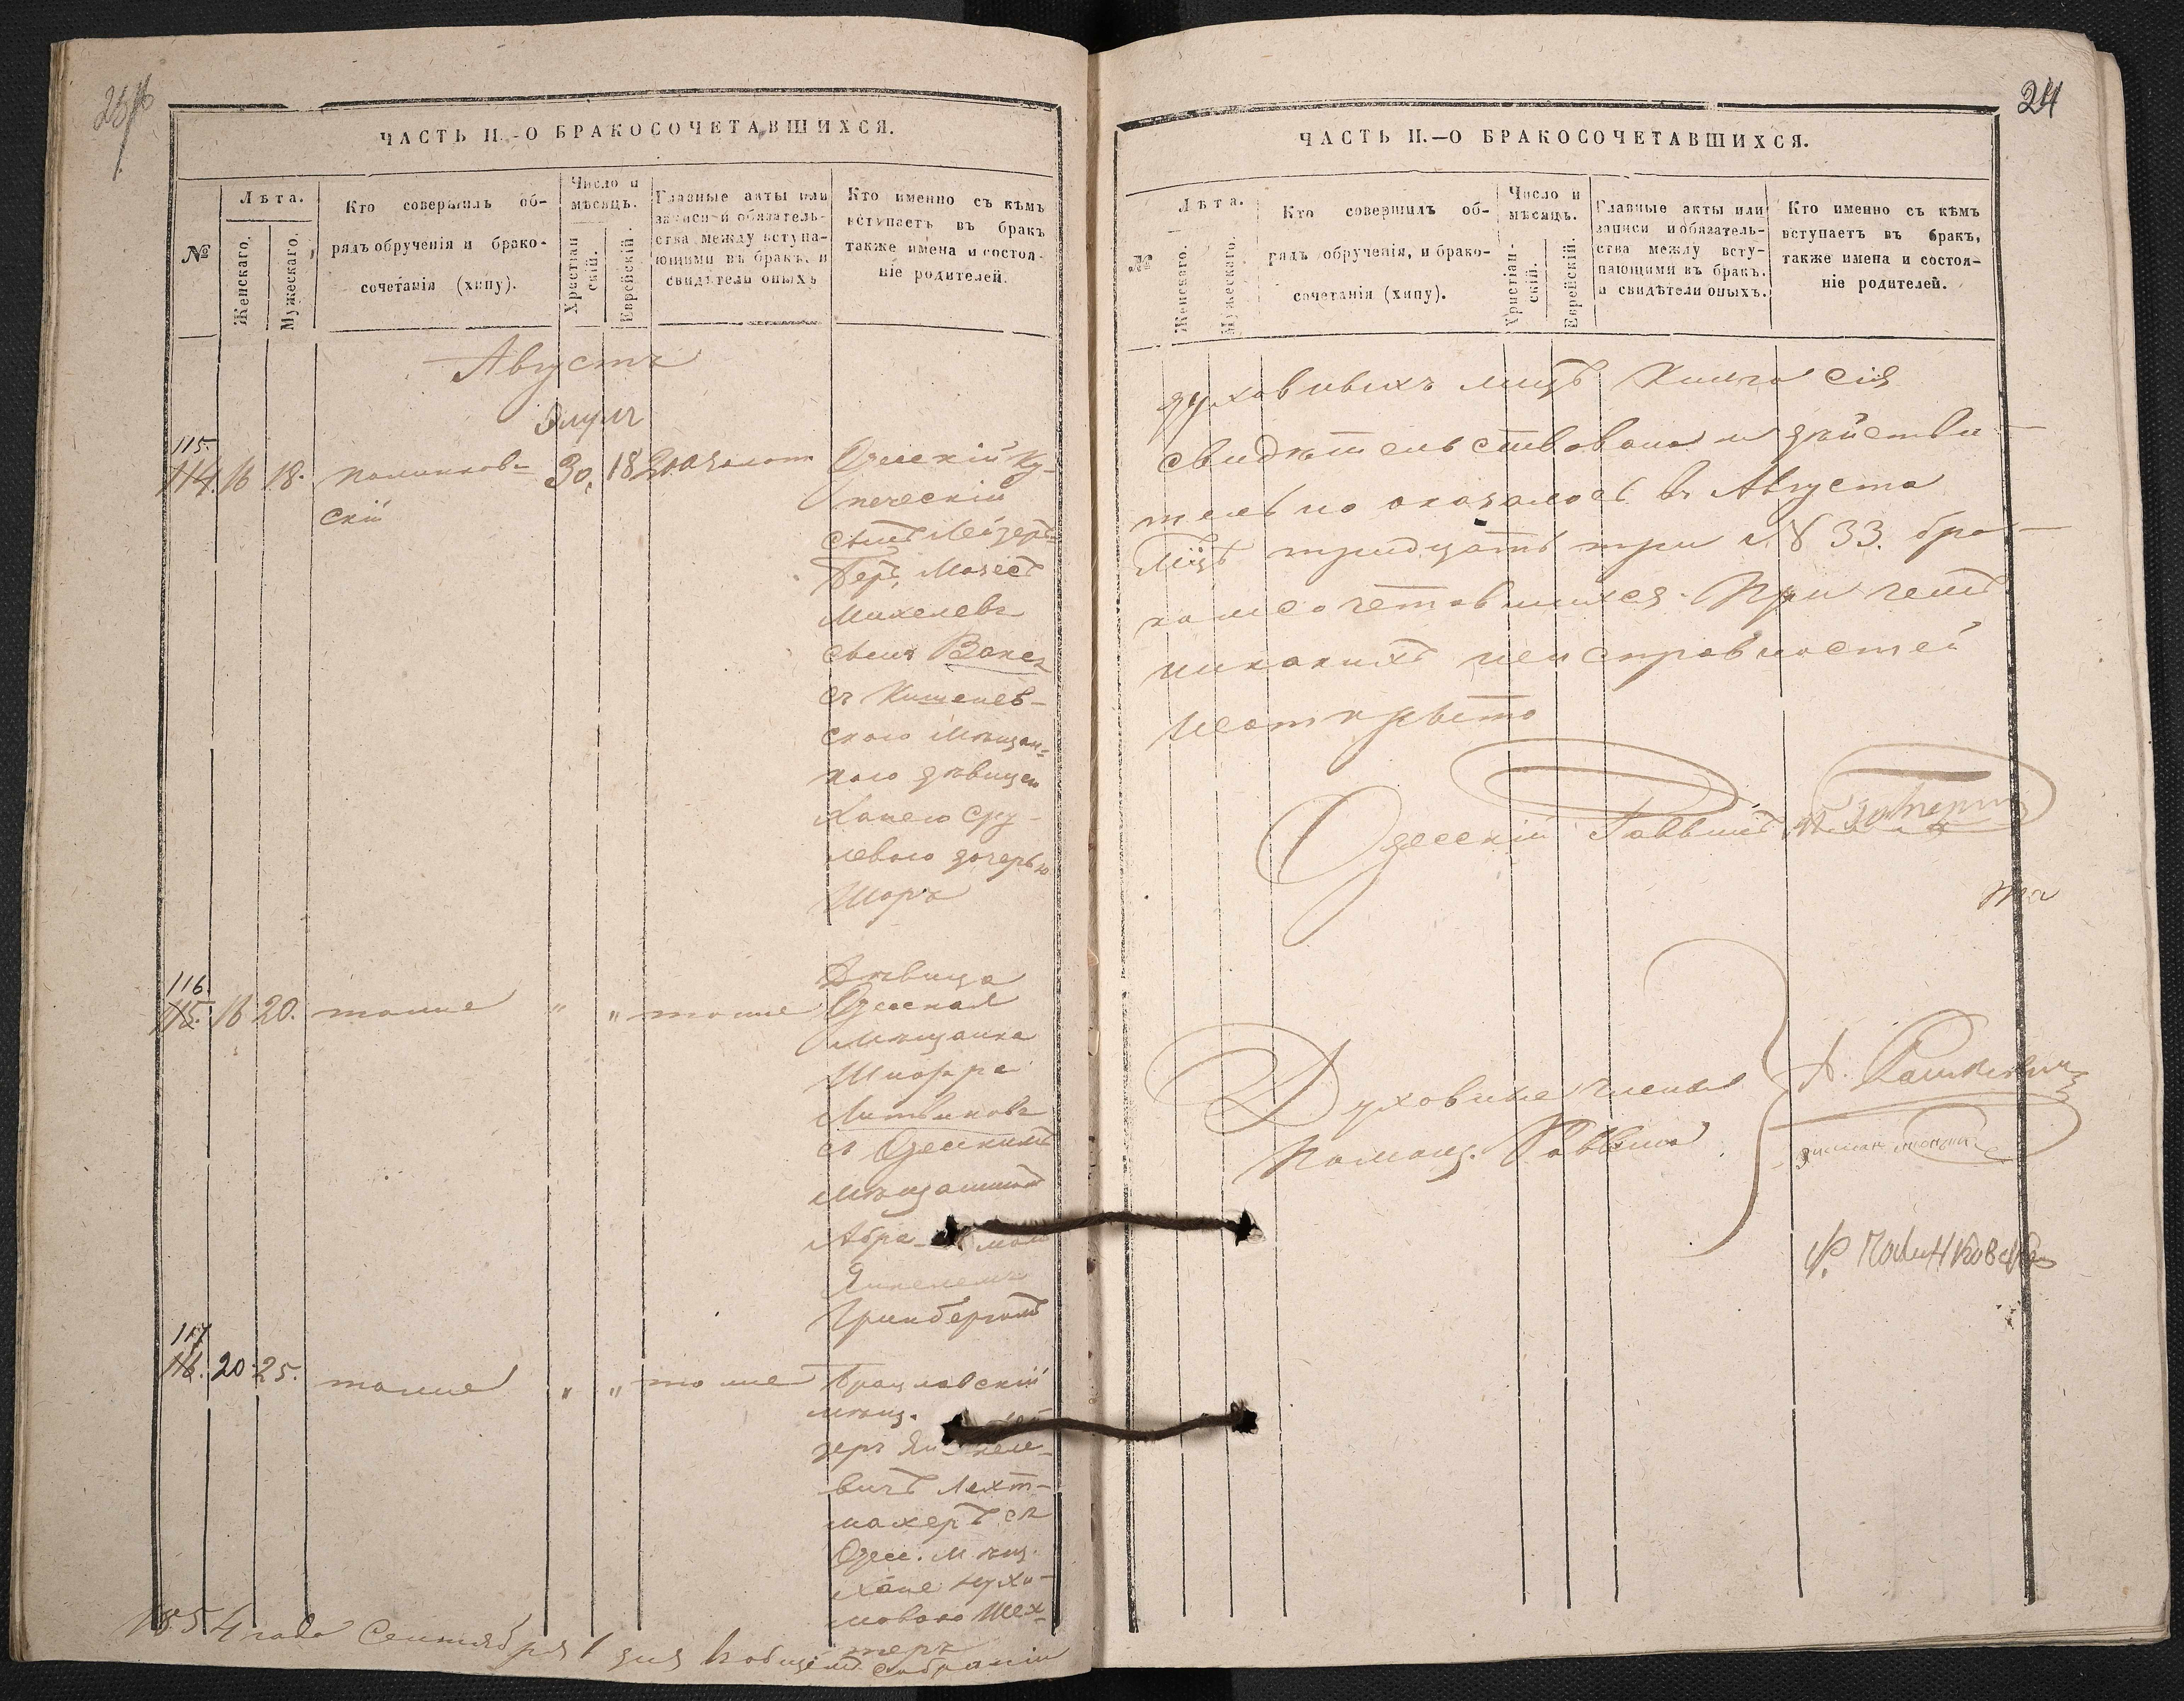 ЧАСТЬ II.-О БРАКОСОЧЕТАВШИХСЯ.
№
Лѣта.
Женскаго.
Мужескаго.
Кто совершилъ об-
рядъ обрученія и брако-
сочетанія (хипу).
Число и
мѣсяцъ.
Христіан
скій.
Еврейскій.
Главные акты или
записи и обязатель-
ства между вступа-
ющими въ бракъ, и
свидѣтели оныхъ
Кто именно съ кѣмъ
вступаетъ въ бракъ
также имена и состоя-
ніе родителей.
Августъ
Элулъ
115.
114. 16 18. Полинков-
скій
30, 18
Одесскій Ку-
печескій
сынъ Лейзеръ
Беръ, Мозесъ
Михелевъ
сынъ Ваксъ
съ Кишенев-
скою Мѣщан-
кою дѣвицею
Ханею Сру-
левою дочерью
Шоръ
116.
115. 16 20. тоже " " тоже
Дѣвица
Одесская
Мѣщанка
Шифра
Литвиновъ
съ Одесскимъ
Мѣщаниномъ
Абра момъ
Янкелемъ
Гринбергомъ
117
116. 20 25. тоже " " тоже
Брацлавскій
мѣщ.
зеръ Ян келе-
вичъ Лехт-
махеръ съ
Одес. Мѣщ.
Хане Нухи-
мовою Шех-
теръ
1854 года Сентября 1 дня Вобщемъ Собраніи
24
ЧАСТЬ II.—О БРАКОСОЧЕТАВШИХСЯ.
№
Лѣта.
Женскаго.
Мужескаго.
Кто совершилъ об-
рядъ обрученія, и брако-
сочетанія (хипу).
Число и
мѣсяцъ.
Христіан-
скій.
Еврейскій.
Главные акты или
записи и обязатель-
ства между всту-
пающими въ бракъ.
и свидѣтели оныхъ.
Кто именно съ кѣмъ
вступаетъ въ бракъ,
также имена и состоя-
ніе родителей.
духовныхъ лицъ Книга сія
свидѣтельствована и дѣйстви-
тельно оказалось въ Августа
М-цѣ тридцать три № 33. бра-
комсочетавшихся. При чемъ
никакихъ неисправностей
неоткрыто
Одесскій Раввинъ
Духовные члены
Помощ. Раввина
Полинковскій